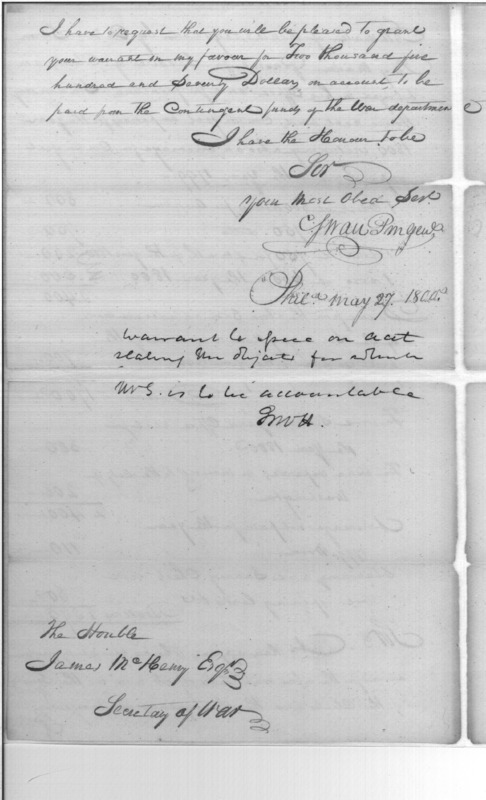 I have to request that you will be pleased to grant
your warrant in my favour for Two thousand five
hundred and Seventy Dollars on account to be
paid from the Contingent funds of the War department
I have the Honour to be
Sir
your Most Obed Servt.
C Swan P m genl
Phila. May 27. 1800.
warrant to issue on acct
stating the objects for which
Mr S. is to be accountable
The Honble
James McHenry Esqr.
Secretary of War